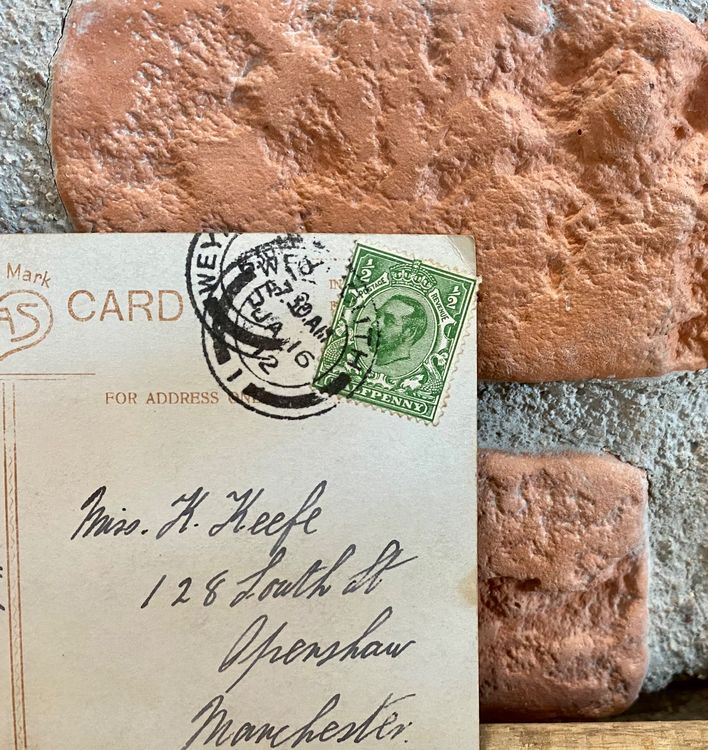 Mark
AS
CARD
FOR ADDRESS ON
WEY
TH
7.30AM
JA 16
12
1
½ ½
POSTAGE REVENUE
FPENNY
Miss. K. Keefe
128 South St
Openshaw
Manchester.